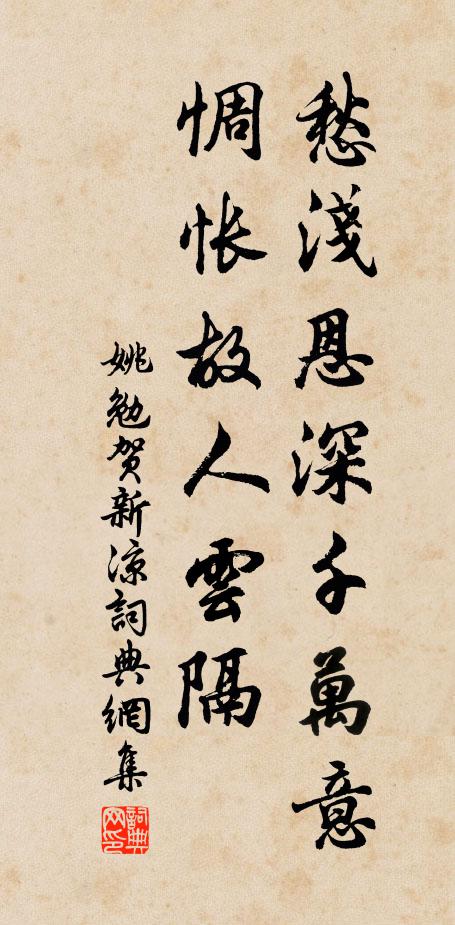 愁淺恩深千萬意
惆怅故人雲隔
姚勉贺新涼詞典網集
詞典网印